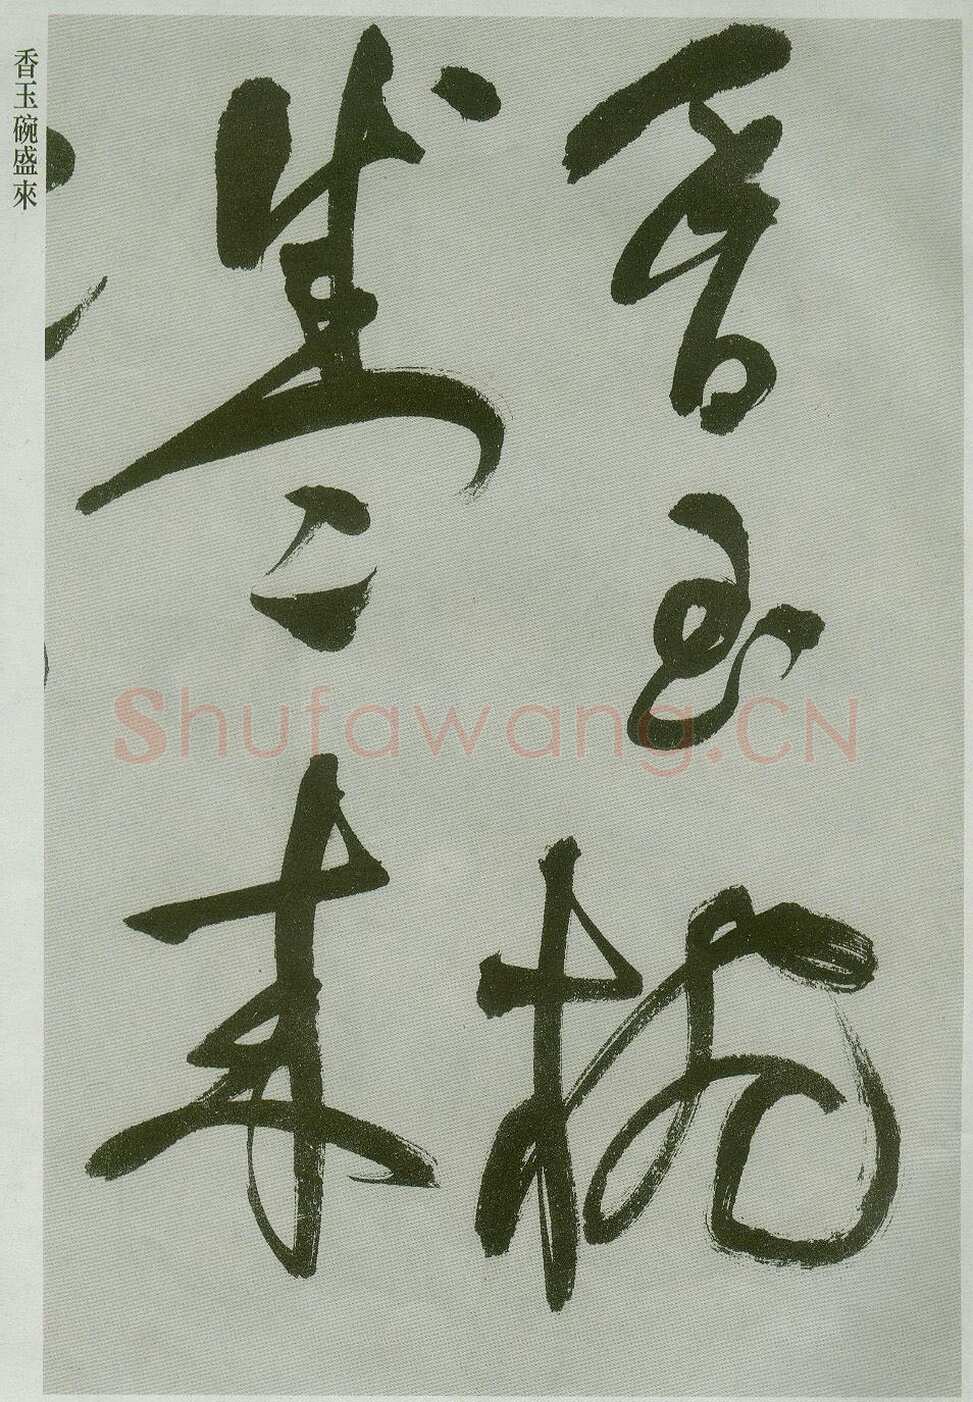 香玉椀
盛來
香玉碗盛來
Shufawang.CN